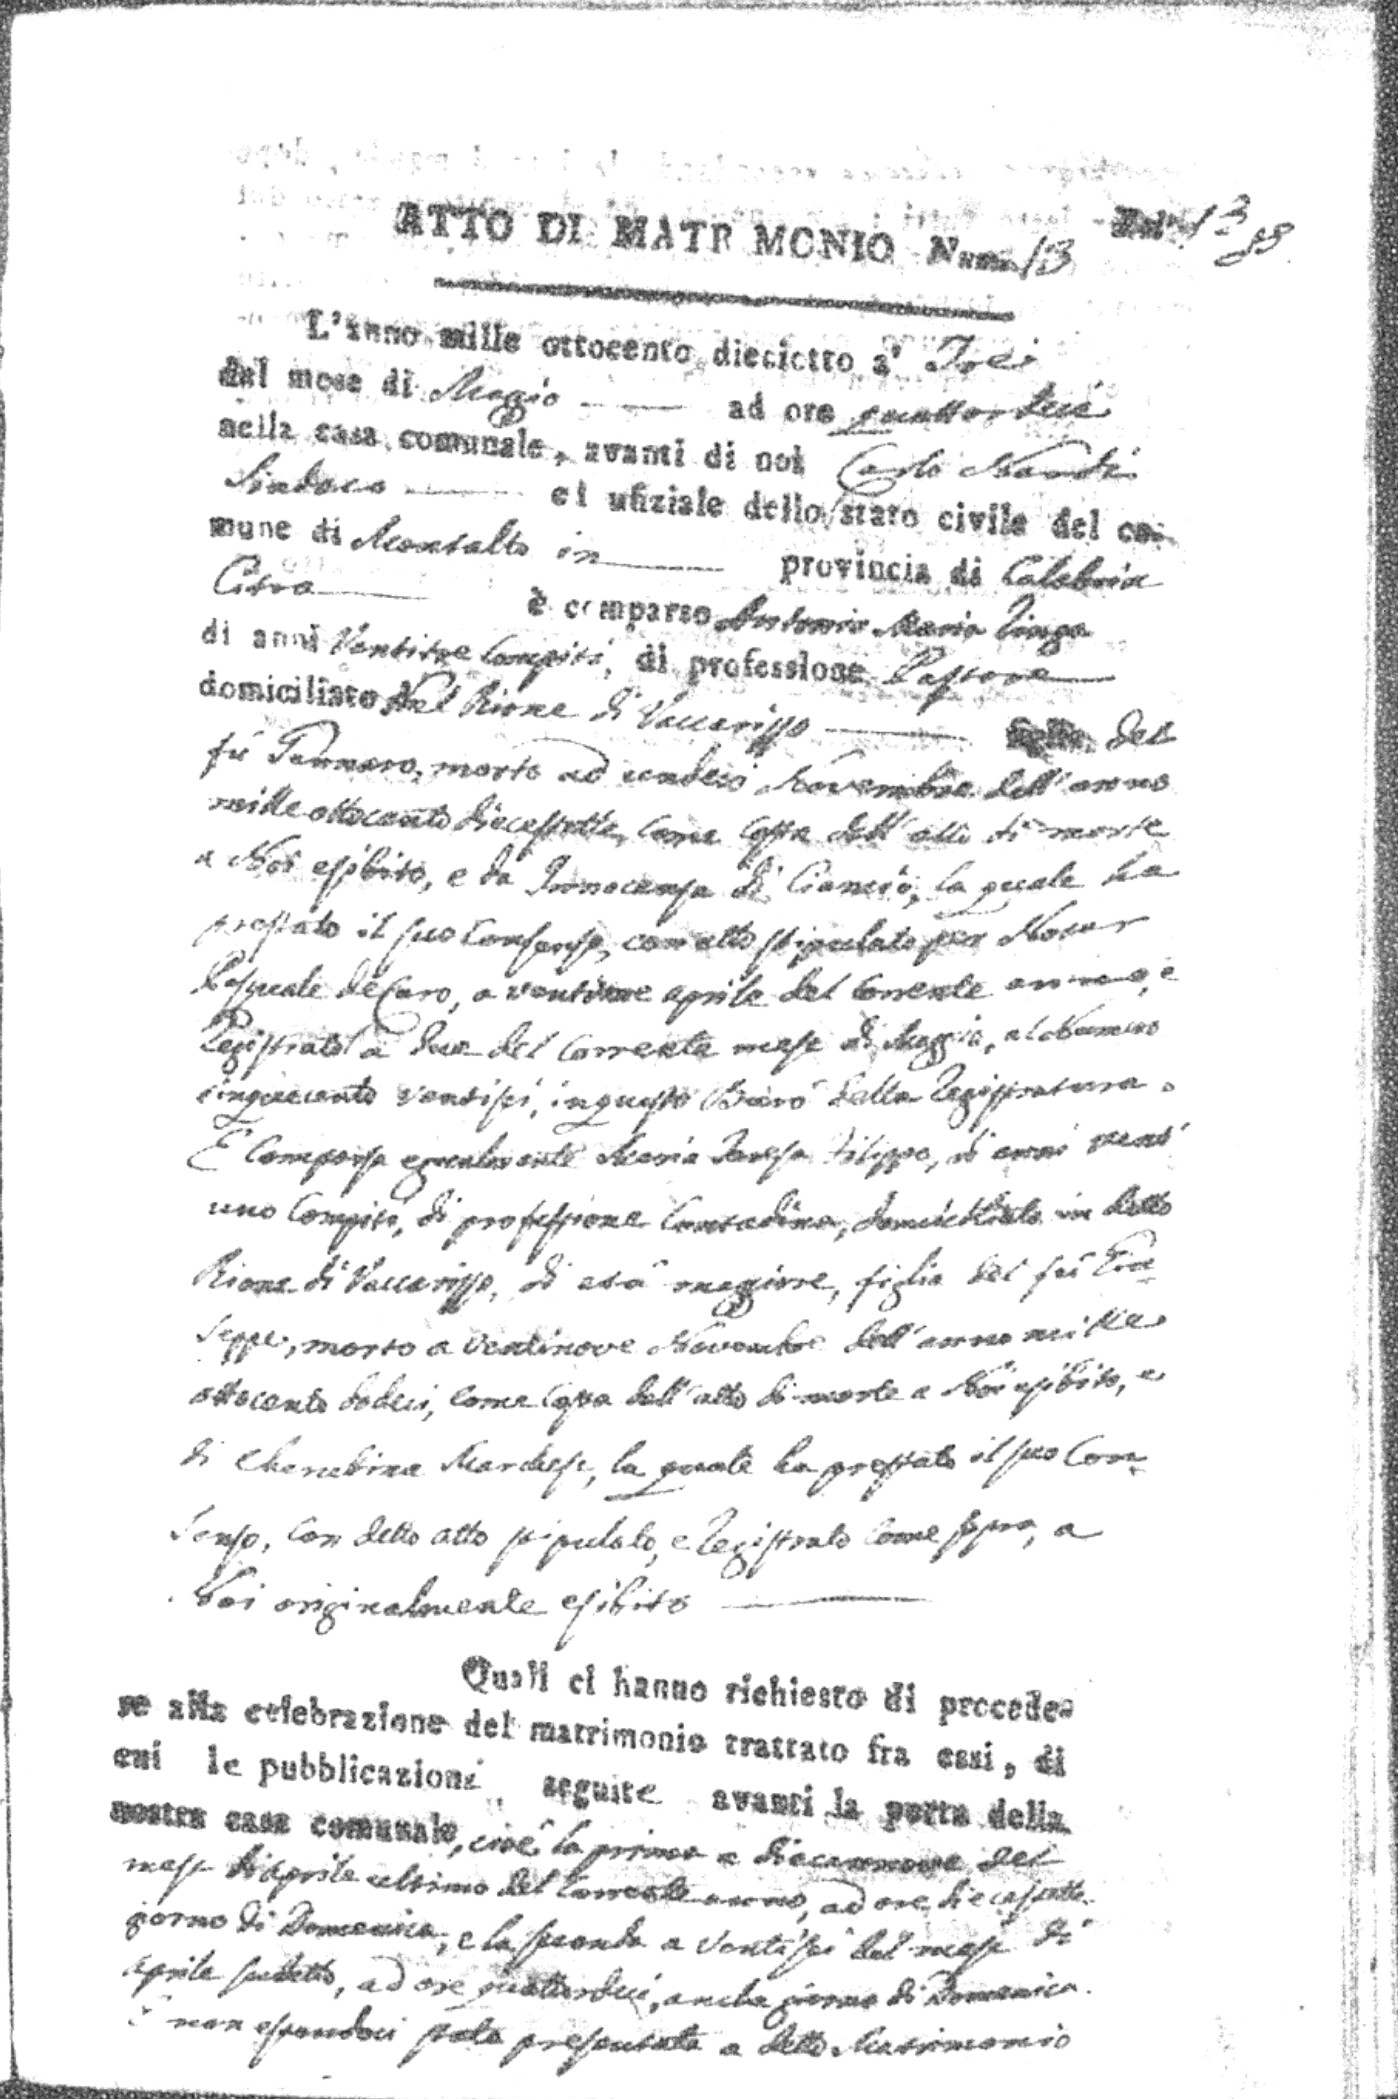 ATTO DI MATR MONIO Num. 13
13
88
L'anno mille ottocento dieciotto a' Trei
del mese di Maggio ad ore quattordici
nella casa comunale, avanti di noi Carlo Nardi
Sindaco ed ufiziale dello stato civile del co-
mune di Montalto in provincia di Calabria
Citra è comparso Antonio Maria Tinga
di anni Ventitre Compiti, di professione Pastore
domiciliato Nel Rione di Vaccarizzo del
fù Gennaro, morto ad undeci Novembre dell'anno
mille ottocento diecessette, come Copia dell'atto di morte
a Noi esibito, e da Innocenza di Ciancio, la quale ha
prestato il suo Consenso, con atto stipulato per Notar
Pasquale de Caro, a ventitre aprile del Corrente anno, e
Registrato a due del Corrente mese di Maggio, al Numero
cinquecento ventisei, in questo Burò della Registratura.
È Comparsa egualmente Maria Teresa Filippo, di anni vent'
uno Compiti, di professione Contadina, domiciliata in detto
Rione di Vaccarizzo, di età maggiore, figlia del fù Giu-
seppe, morto a ventinove Novembre dell'anno mille
ottocento dodeci, come Copia dell'atto di morte a Noi esibito, e
di Cherubina Marchese, la quale ha prestato il suo Con-
senso, Con detto atto stipulato, e Registrato Come sopra, a
Noi originalmente esibito
Quali ci hanno richiesto di procede-
re alla celebrazione del matrimonio trattato fra essi, di
cui le pubblicazioni seguite avanti la porta della
nostra casa comunale, cioè la prima a diecennove del
mese di aprile ultimo del Corrente anno, ad ore diecessette
giorno di Domenica, e la seconda a ventisei del mese di
aprile sudetto, ad ore quattordici, anche giorno di Domenica.
E non essendoci stata presentata a detto Matrimonio